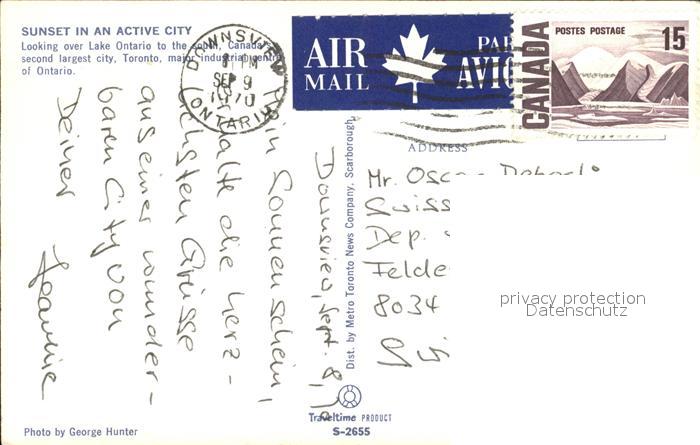 SUNSET IN AN ACTIVE CITY
Looking over Lake Ontario to the south, Canada's
second largest city, Toronto, major industrial centre
of Ontario.
DOWNSVIEW
PM
SEP 9
1970
ONTARIO
AIR
MAIL
PAR
AVION
CANADA
POSTES POSTAGE
15
ADDRESS
Downsview, Sept. 8, 70
Mein Sonnenschein,
halte die herz-
lichsten Grüsse
aus einer wunder-
baren City von
Deiner
Jeannine
Mr. Oscar
Swiss
Dep.
Felde
8034
privacy protection
Datenschutz
Dist. by Metro Toronto News Company, Scarborough,
Traveltime PRODUCT
S-2655
Photo by George Hunter